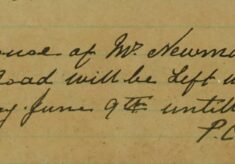 ouse of Mr. Newma
Road will be Left u
ay June 9th untill
P. C